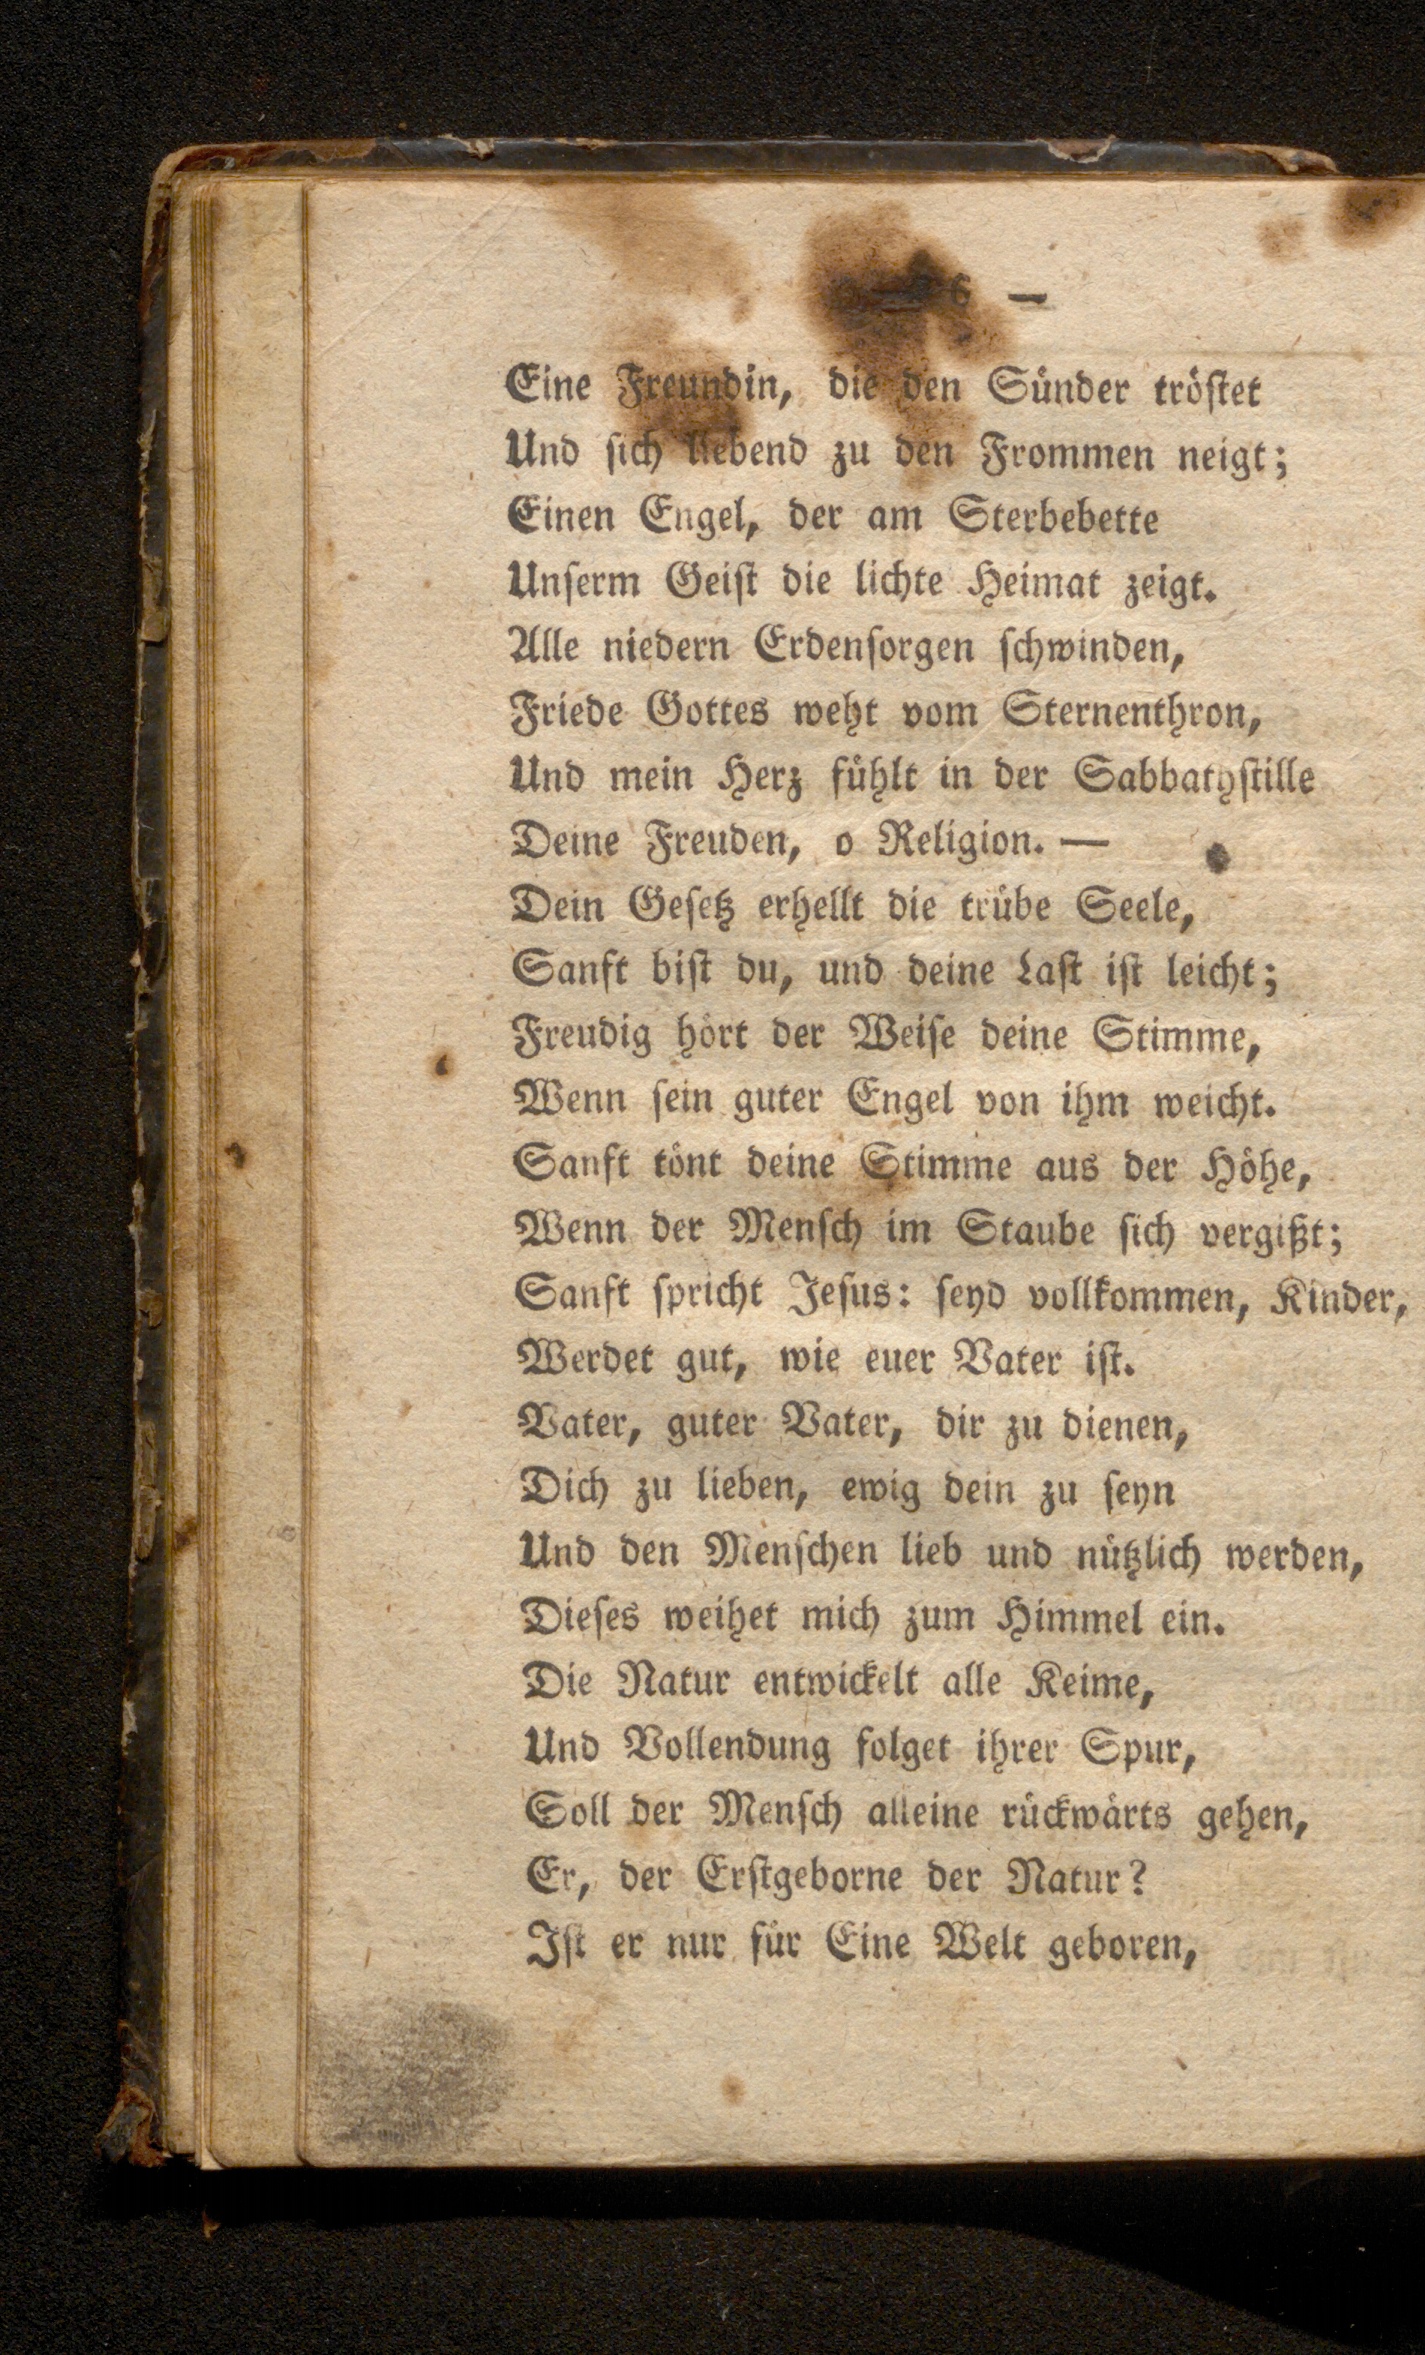 Eine Freundin, die den Sünder tröſtet
Und ſich liebend zu den Frommen neigt;
Einen Engel, der am Sterbebette
Unſerm Geiſt die lichte Heimat zeigt.
Alle niedern Erdenſorgen ſchwinden,
Friede Gottes weht vom Sternenthron,
Und mein Herz fühlt in der Sabbathſtille
Deine Freuden, o Religion. —
Dein Geſetz erhellt die trübe Seele,
Sanft biſt du, und deine Laſt iſt leicht;
Freudig hört der Weiſe deine Stimme,
Wenn ſein guter Engel von ihm weicht.
Sanft tönt deine Stimme aus der Höhe,
Wenn der Menſch im Staube ſich vergißt;
Sanft ſpricht Jeſus: ſeyd vollkommen, Kinder,
Werdet gut, wie euer Vater iſt.
Vater, guter Vater, dir zu dienen,
Dich zu lieben, ewig dein zu ſeyn
Und den Menſchen lieb und nützlich werden,
Dieſes weihet mich zum Himmel ein.
Die Natur entwickelt alle Keime,
Und Vollendung folget ihrer Spur,
Soll der Menſch alleine rückwärts gehen,
Er, der Erſtgeborne der Natur?
Iſt er nur für Eine Welt geboren,